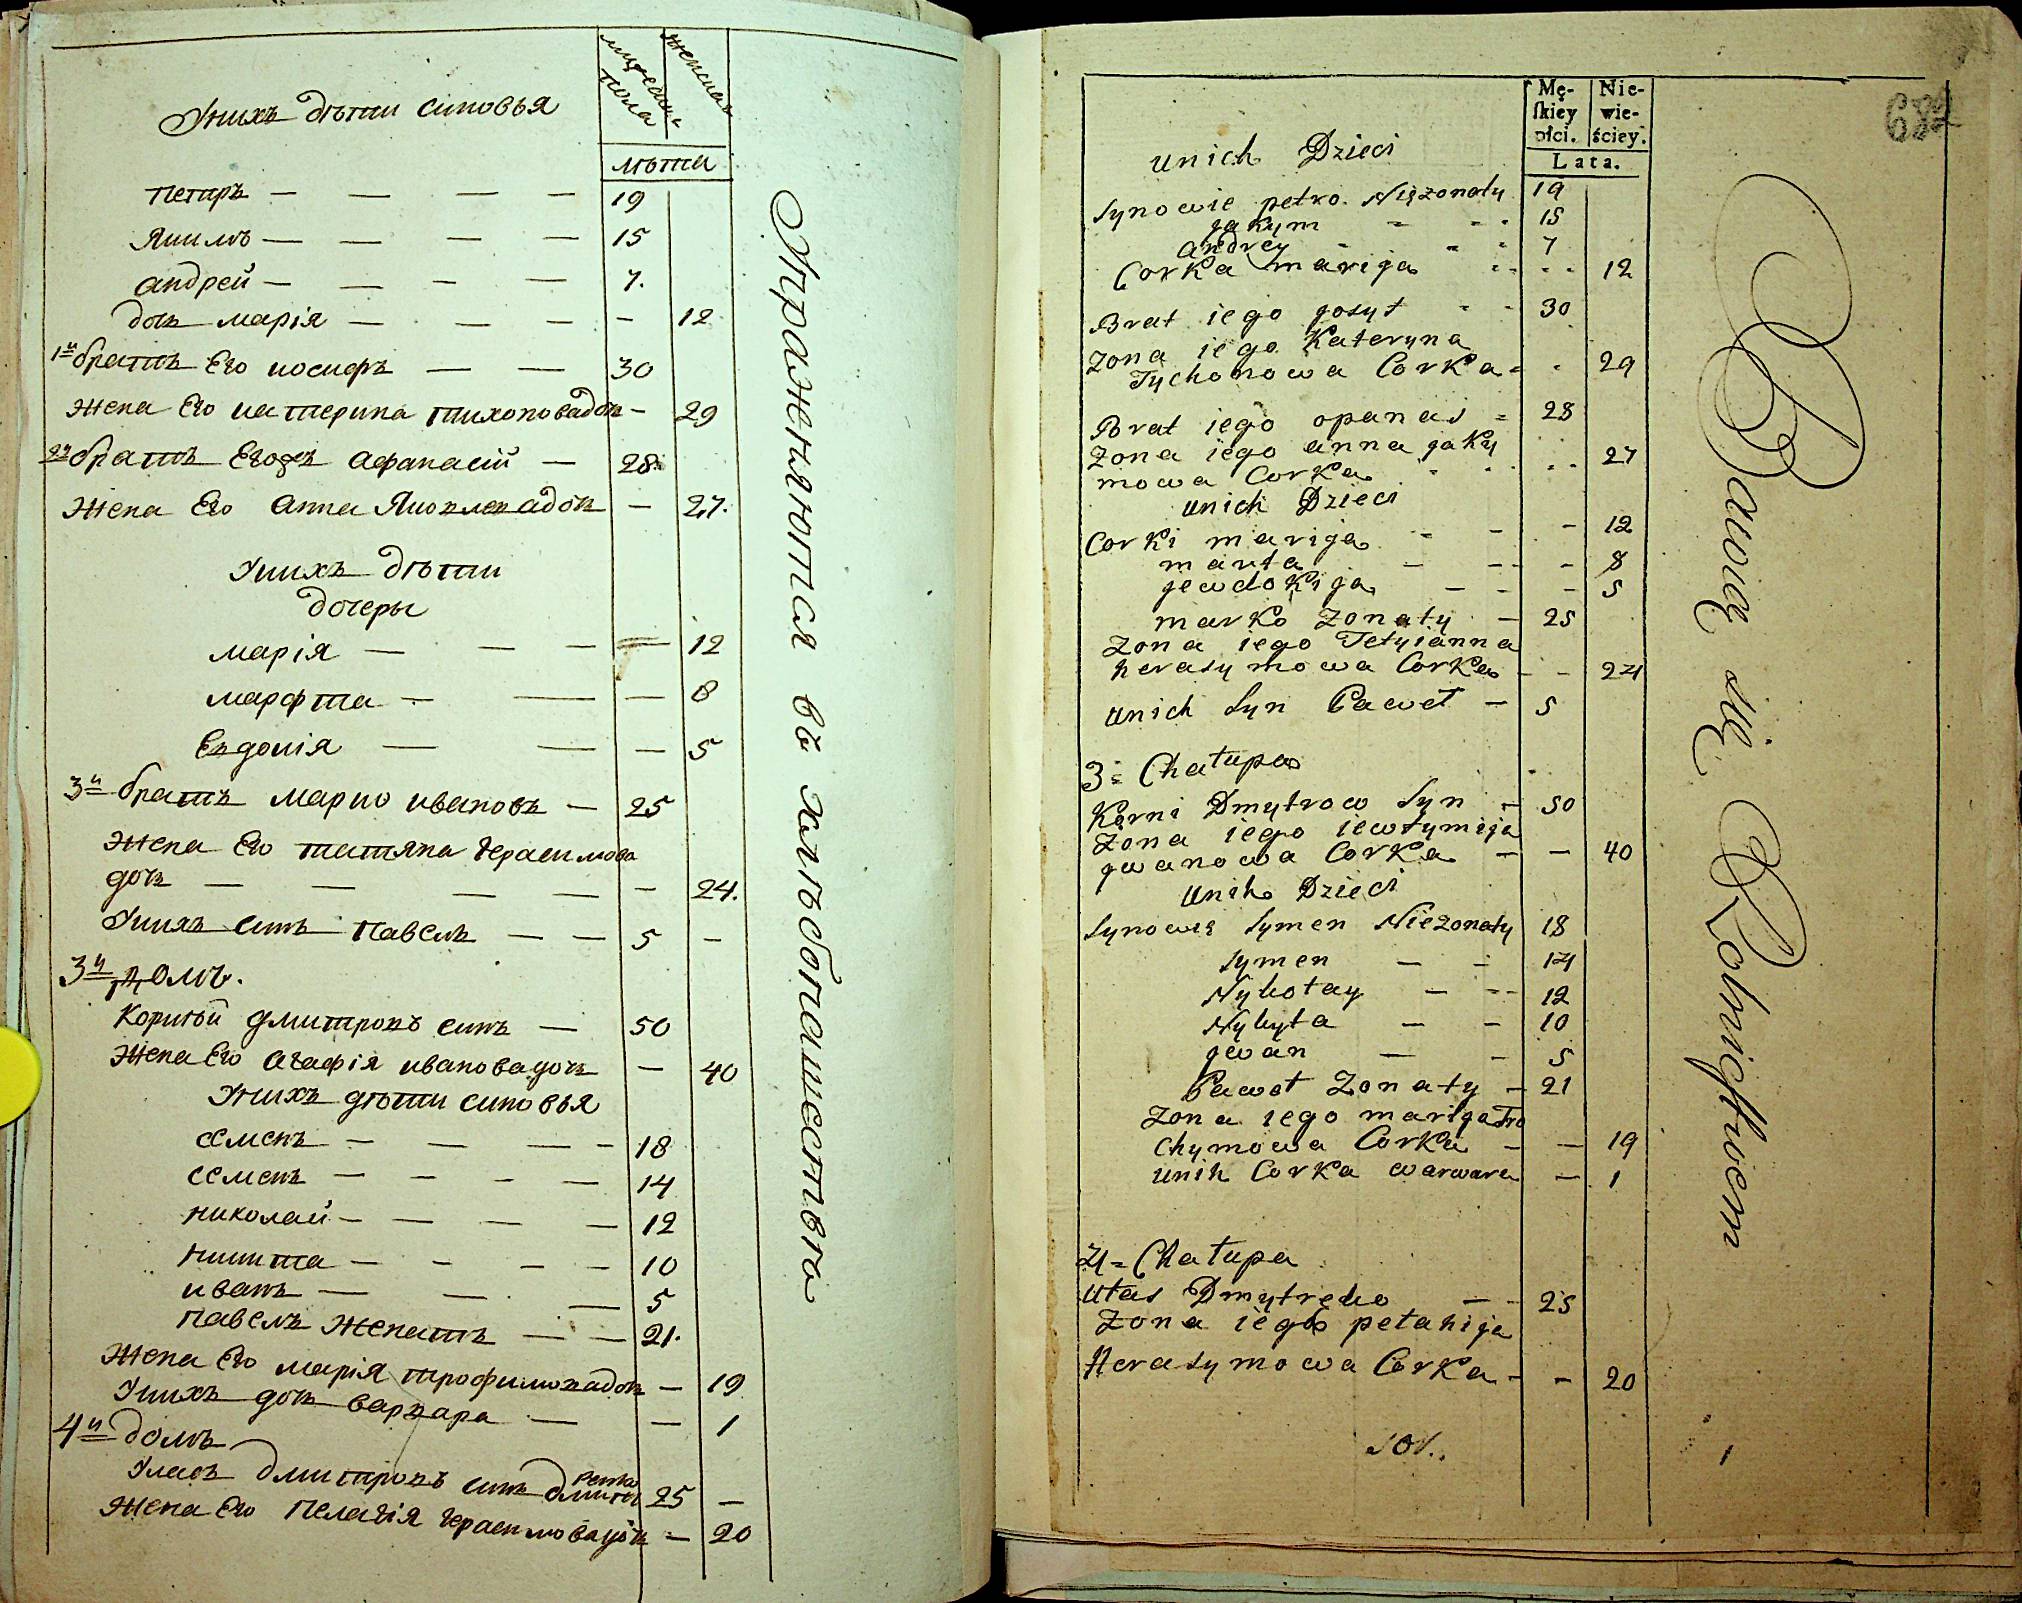 мужеска пола
женска
Унихъ дѣти синовья
лѣта
петръ — — — — 19
Якимъ — — — — 15
андрей — — — — 7.
дочь марія — — — — 12
1й братъ Его иосифъ — — 30
жена Его катерина тихоновадочь — 29
2й братъ Егожъ афанасій — 28.
жена Его анна Якимовадочь — 27.
Унихъ дѣти
дочеры
марія — — — — 12
марфта — — — 8
Евдокія — — — 5
3й братъ марко ивановъ — 25
жена Его татяна герасимова
дочь — — — — — 24.
Унихъ синъ павелъ — — 5 —
3й домъ.
Корнѣй дмитровъ синъ — 50
жена Его агафія ивановадочь — 40
Унихъ дѣти синовья
семенъ — — — — 18
семенъ — — — — 14
николай — — — — 12
никита — — — — 10
иванъ — — — 5
павелъ женатъ — — 21.
жена Его марія трофимовадочь — 19
Унихъ дочь варвара — — 1
4й домъ
Уласъ дмитровъ синъ 25 —
жена Его пелагія герасимовадочь — 20
Упражняются въ хлѣбопашествѣ
687
Mę-
skiey
płci.
Nie-
wie-
ściey.
Lata.
unich Dzieci
Synowie petro. Niezonaty 19
jakym - - - 15
andrey - - - 7
Corka marija - - - - 12
Brat iego josyf - - 30
zona iego Kateryna
Tychonowa Corka - - 29
Brat iego opanas - 28
zona iego anna jaky
mowa Corka - - - - 27
unich Dzieci
Corki marija - - - 12
marta - - - 8
jewdokija - - - 5
marko zonaty - 25
zona iego Tetyianna
herasymowa Corka - - 24
unich Syn Paweł - 5
3 = Chałupa
Korni Dmytrow Syn - 50
zona iego iewfymija
jwanowa Corka - - 40
unih Dzieci
Synowie Symen Niezonaty 18
Symen - - 14
Nykołay - - - 12
Nykyta - - 10
jwan - - 5
Paweł zonaty - 21
zona iego marija Tro
chymowa Corka - - 19
unih Corka warwara - 1
4 = Chałupa
Ułas Dmytreko - - 25
zona iego pełahija
Herasymowa Corka - - 20
Bawię się Rolnictwem